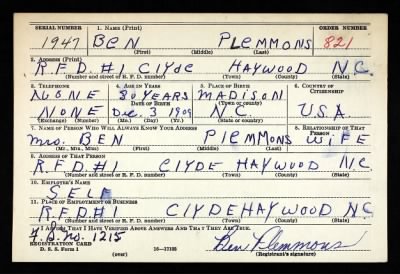 SERIAL NUMBER 1. NAME (Print) ORDER NUMBER
1947 BEN PLEMMONS 821
(First) (Middle) (Last)
2. ADDRESS (Print)
R.F.D. #1 CLYDE HAYWOOD N.C.
(Number and street or R. F. D. number) (Town) (County) (State)
3. TELEPHONE 4. AGE IN YEARS 5. PLACE OF BIRTH 6. COUNTRY OF CITIZENSHIP
NONE 30 YEARS MADISON
DATE OF BIRTH
NONE Dec. 3 1909 N.C. U.S.A.
(Exchange) (Number) (Mo.) (Day) (Yr.) (State or country)
7. NAME OF PERSON WHO WILL ALWAYS KNOW YOUR ADDRESS 8. RELATIONSHIP OF THAT PERSON
Mrs. BEN PLEMMONS WIFE
(Mr., Mrs., Miss) (First) (Middle) (Last)
9. ADDRESS OF THAT PERSON
R.F.D. #1 CLYDE HAYWOOD N.C.
(Number and street or R. F. D. number) (Town) (County) (State)
10. EMPLOYER'S NAME
SELF
11. PLACE OF EMPLOYMENT OR BUSINESS
R.F.D. #1 CLYDE HAYWOOD N.C.
(Number and street or R. F. D. number) (Town) (County) (State)
I AFFIRM THAT I HAVE VERIFIED ABOVE ANSWERS AND THAT THEY ARE TRUE.
No. 1215
REGISTRATION CARD
D. S. S. Form 1 16—17105 Ben Plemmons
(Registrant's signature)